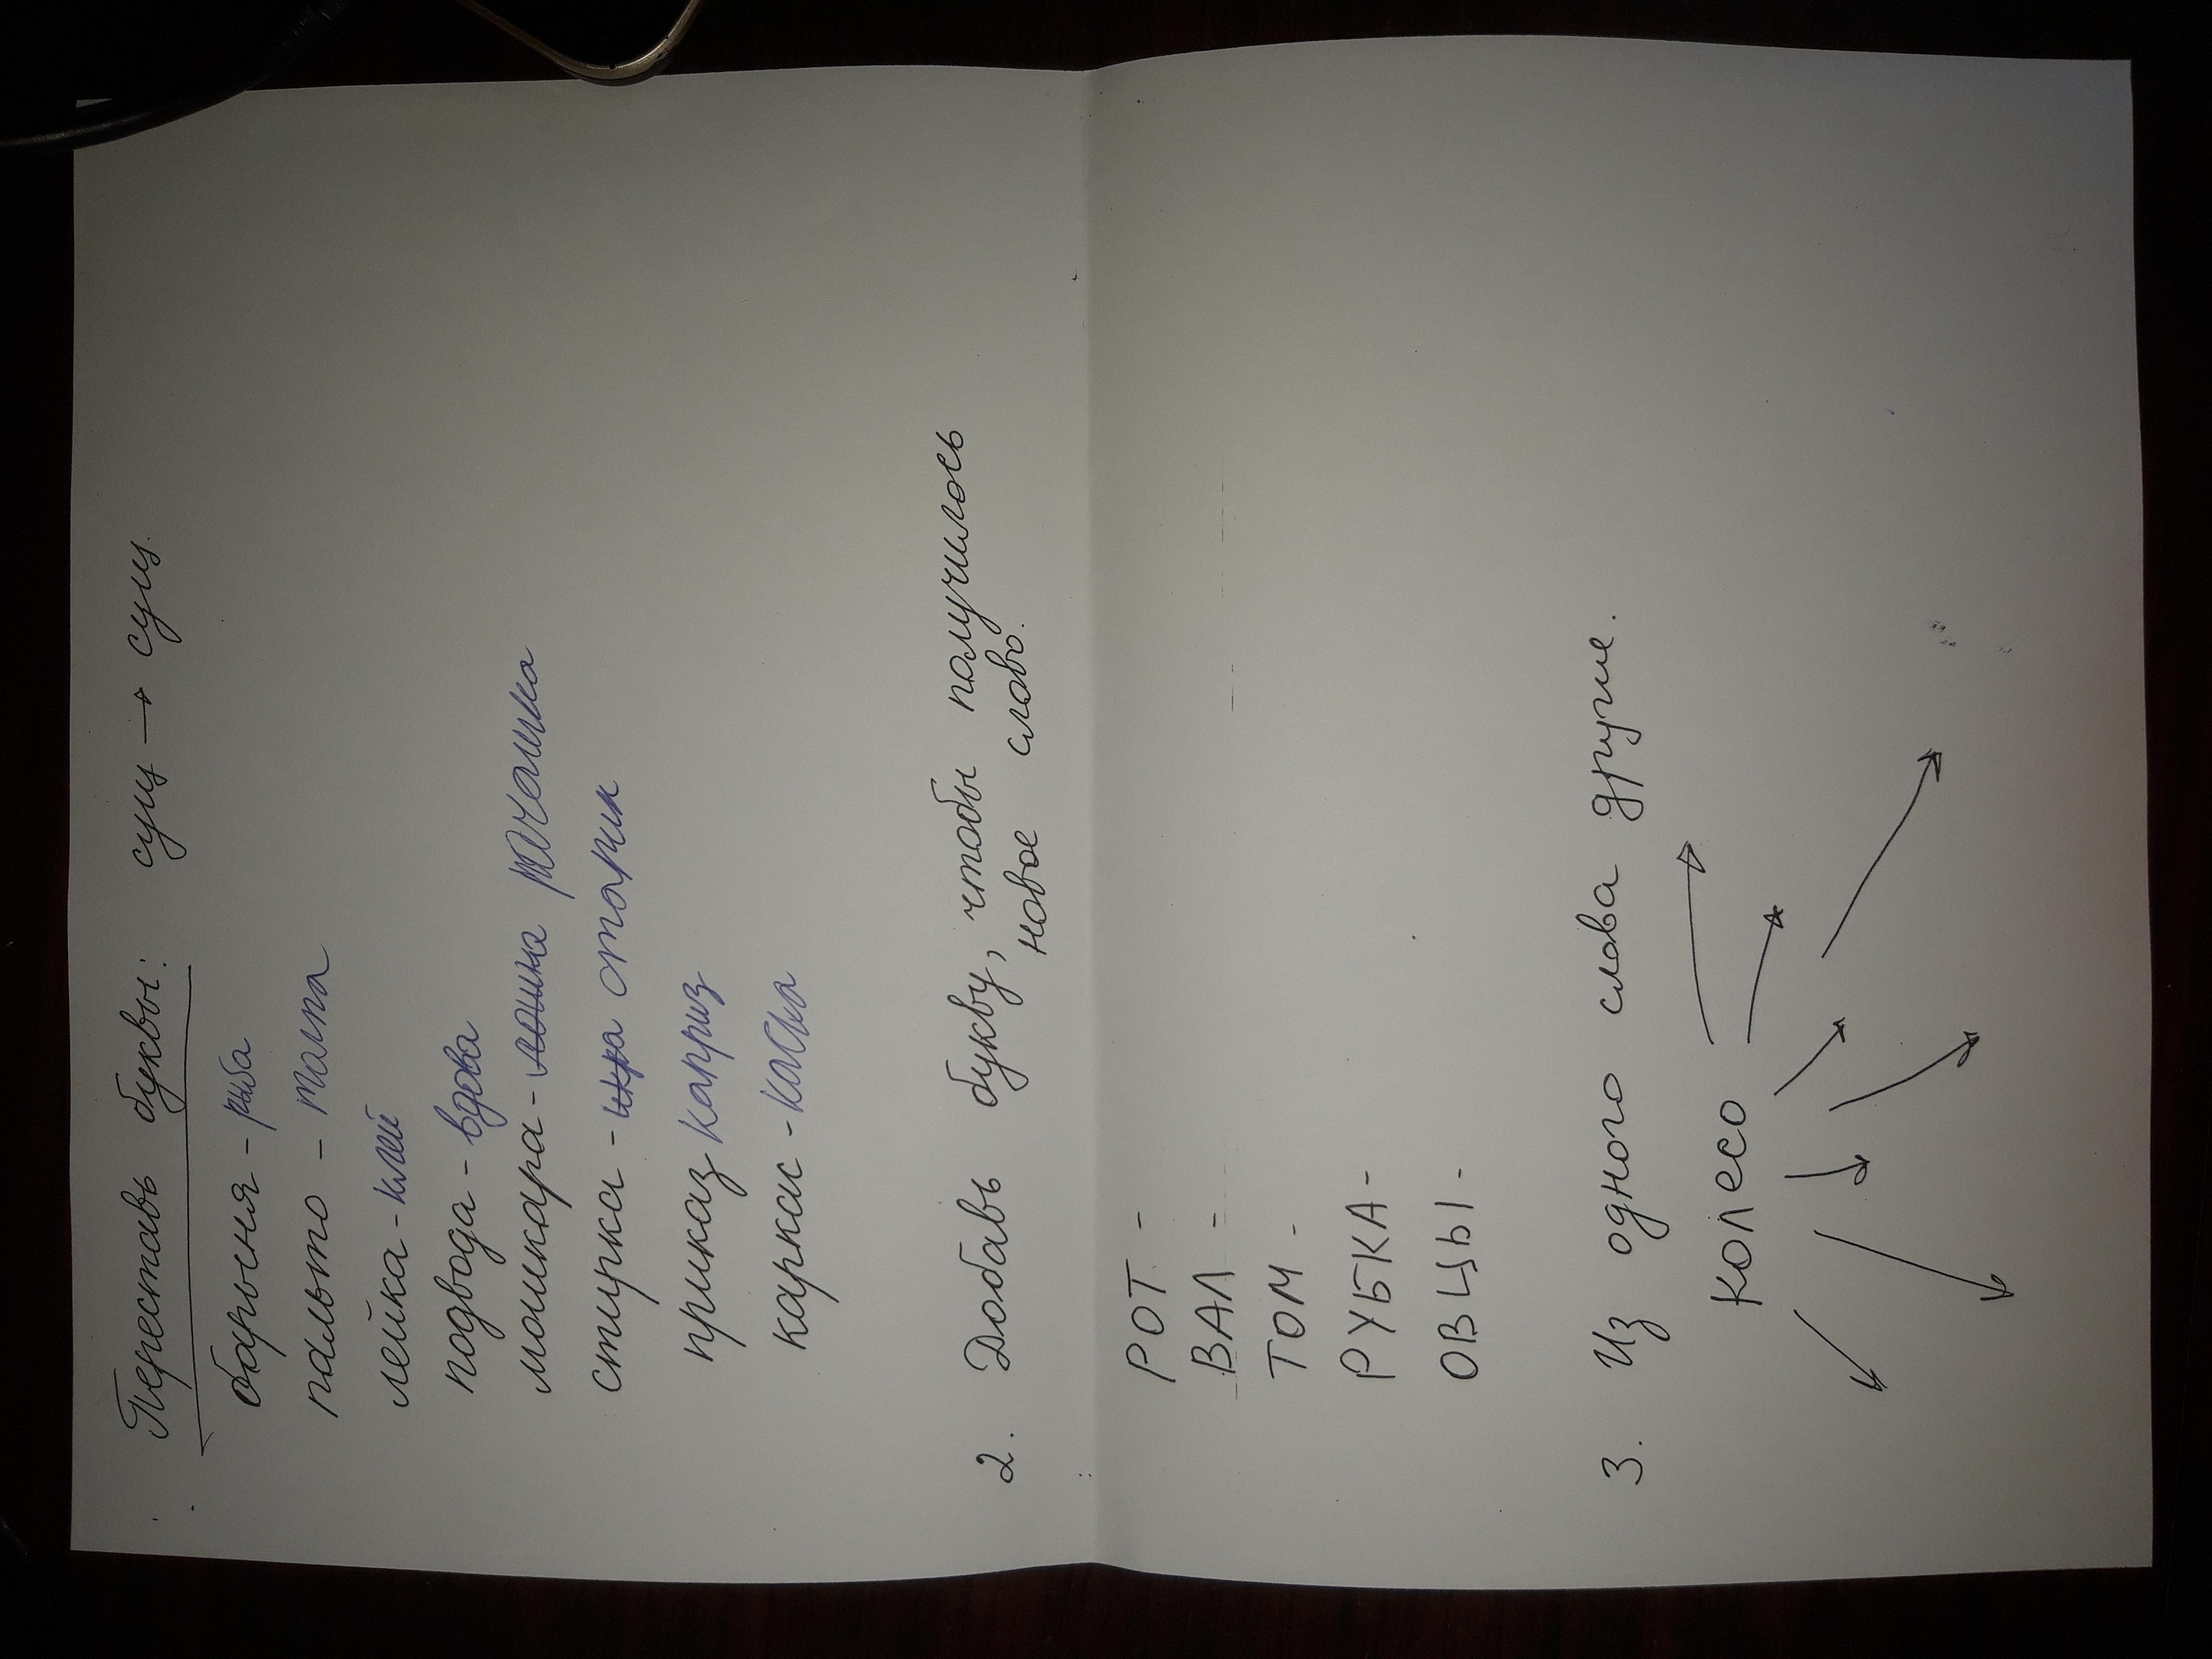 Переставь буквы: сущ → сущ.
барыня - рыба
пальто - толпа
лейка - клей
подвода - вдова
мошкара - ромашка
стирка - икра старик
приказ каприз
каркас - каска
2. Добавь букву, чтобы получилось
новое слово.
РОТ -
ВАЛ -
ТОМ -
РУБКА -
ОВЦЫ -
3. Из одного слова другие.
колесо